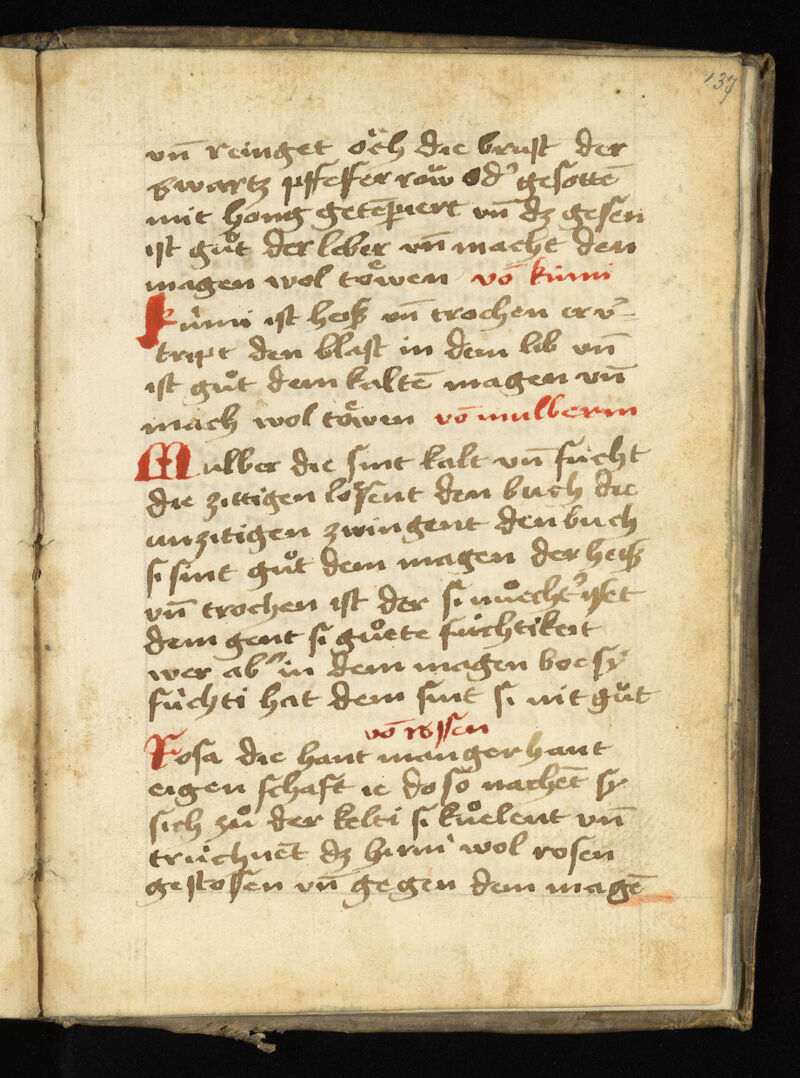 137
vn̄ reinget o̊ch die brust der
swartz pfeffer row od' gesottē
mit hong getēperiert vn̄ dz gesen
ist gůt der leber vn̄ macht den
magen wol töwen vō kümi
Kümi ist heiß vn̄ trochen er v'-
tript den blast in dem lib vn̄
ist gůt dem kaltē magen vn̄
mach wol töwen vō mulberin
Mulber die sint kalt vn̄ fücht
die zittigen lösent den buch die
unzitigen zwingent den buch
si sint gůt dem magen der heiß
vn̄ trochen ist der si nůecht' isset
dem gent si gůete füchtikeit
wer ab' in dem magen boesy
füchti hat dem sint si nit gůt
vō rossen
Rosa die hant mangerhant
eigen schaft ie doso nachēt sy
sich zů der kelti si kůelent vn̄
trüchnēt dz hirni wol rosen
gestossen vn̄ gegen dem magē